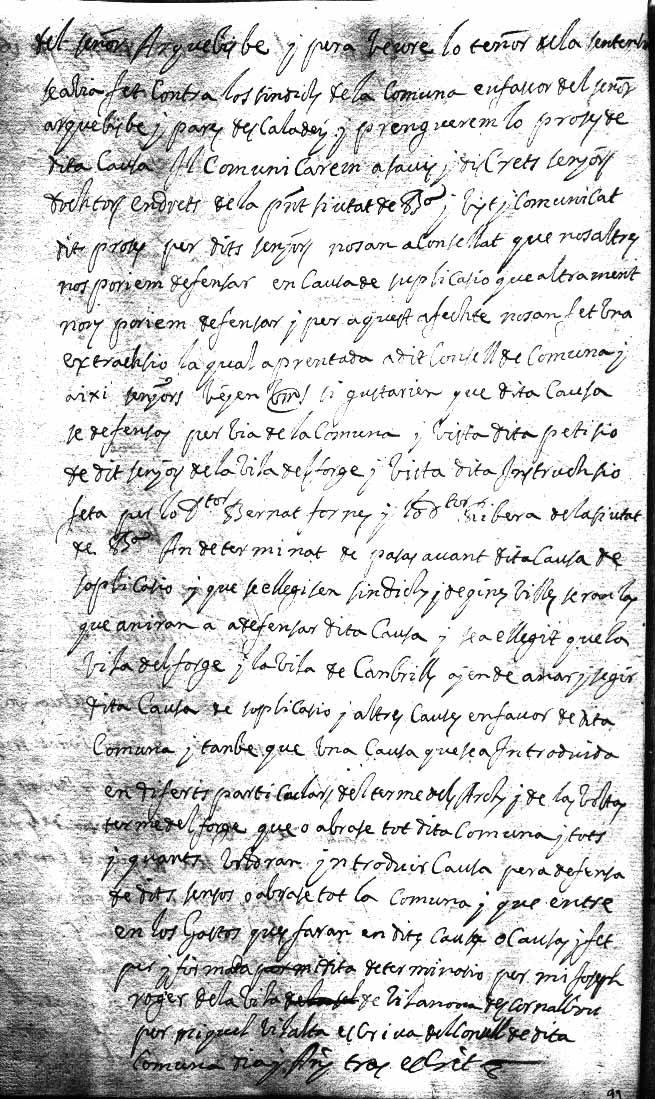 del señor Arquebisbe y pera veure lo tenor de la sentensi
se avia fet Contra los sindichs de la Comuna en favor del señor
arquebisbe y pares des Caladei y prenguerem lo proses de
dita Causa Al Comunicarem a savis y disCrets senyors
dochtors en drets de la pnt siutat de Bna y vist y Comunicat
dit proses per dits senyors nos an aConsellat que nosaltres
nos poriem defensar en Causa de suplicasio que altrament
nons poriem defensar y per aquest afechte nos an fet Una
extrachsio la qual aprentada a dit Consell de Comuna y
aixi senyors vejen vms si gustarien que dita Causa
se defensas per via de la Comuna y vista dita petisio
de dit senyors de la vila del forge y vista dita Instruchsio
feta per lo Dtor Bernat fornes y lo Dtor Ribera de la siutat
de Bna An determinat de pasar avant dita Causa de
soplicasio y que se ellegisen sindichs y de quines viles seran los
que aniran a adefensar dita Causa y sea ellegit que la
vila del forge y la vila de Canbrills ajen de anar y segir
dita Causa de soplicasio y altres Causes en favor de dita
Comuna y tanbe que Una Causa que sea Introduida
en diferts particulars del terme dels Archs y de las voltas
terme del forge que o abrase tot dita Comuna y tots
y quants voldran introduir Causa pera defensa
de dits sensos o abrase tot la Comuna y que entre
en los Gastos ques faran en dites Causa o Causas y fet
per y firmada dita determinasio per mi Joseph
roger de la vila de vilanova des cornalbou
per miquel vilalta esCriva del Consell de dita
Comuna dia y Any tras esCrit
99